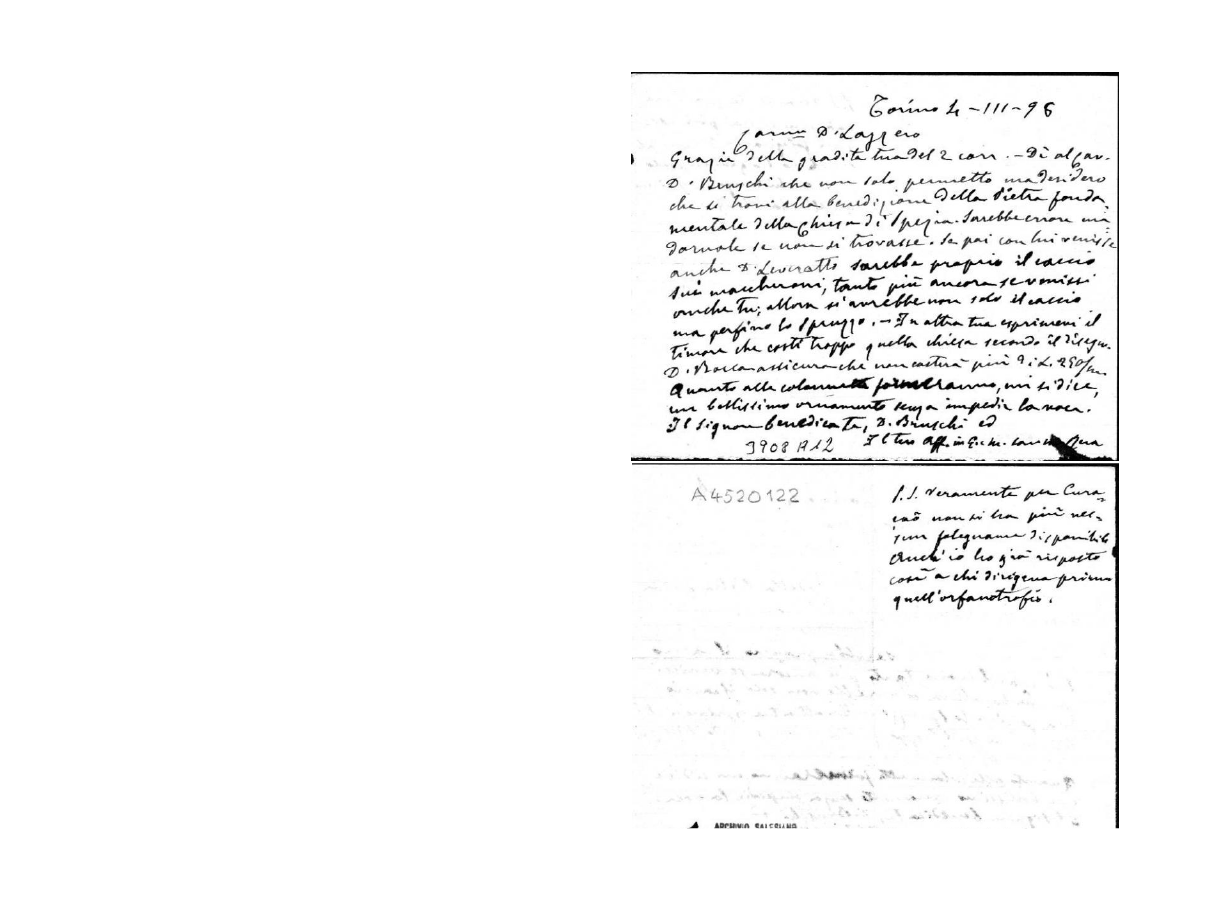 Torino 4-III-96
Carmo D. Lazzero
Grazie della gradita tua del 2 corr. - Dì al Cav.
D. Bruschi che non solo permetto ma desidero
che si trovi alla benedizione della Pietra fonda-
mentale della Chiesa di Spezia. Sarebbe errore ma
dornale se non si trovasse. Se poi con lui venisse
anche D. Leveratto sarebbe proprio il caccio
sui maccheroni, tanto più ancora se venissi
anche tu; allora si avrebbe non solo il caccio
ma perfino lo spruzzo. - In altra tua esprimevi il
timore che costi troppo quella chiesa secondo il disegno.
D. Rocca assicura che non costerà più di L. 250/m.
Quanto alle colonne formeranno, mi si dice,
un bellissimo ornamento senza impedir la voce.
Il Signore benedica te, D. Bruschi ed
Il tuo aff. in G. e M. Sac. M. Rua
3908 A12
A4520122
P.S. Veramente per Cura-
çao non si ha più nes-
sun falegname disponibile
Anch'io ho già risposto
così a chi dirigeva prima
quell'orfanotrofio.
ARCHIVIO SALESIANO